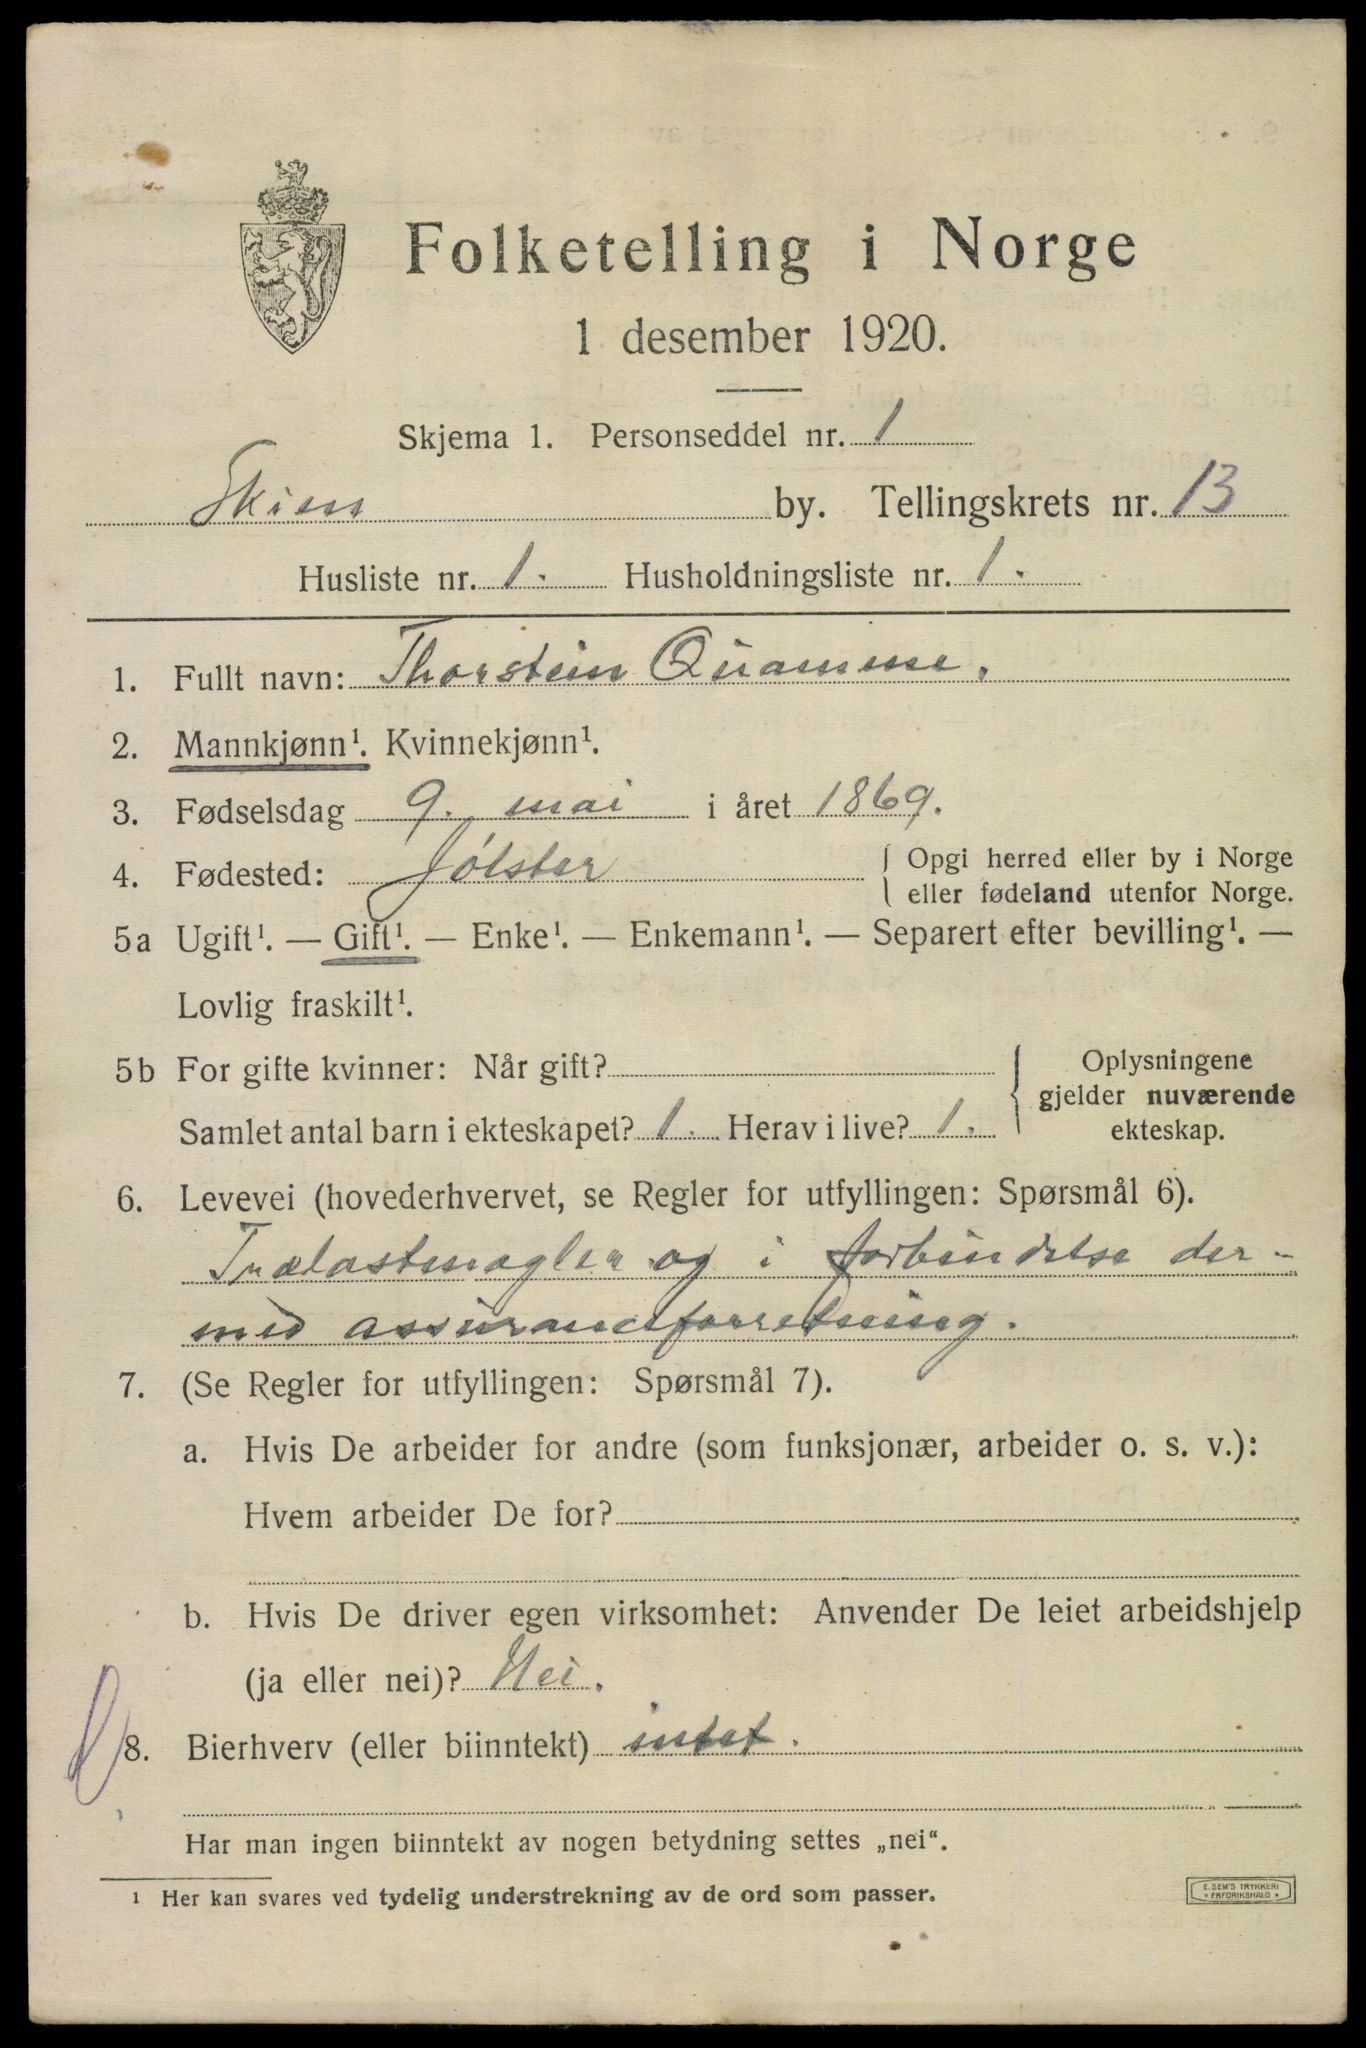 Folketelling i Norge
1 desember 1920.
Skjema 1. Personseddel nr. 1
Skien by. Tellingskrets nr. 13
Husliste nr. 1. Husholdningsliste nr. 1.
1. Fullt navn: Thorstein Quamme.
2. Mannkjønn¹. Kvinnekjønn¹.
3. Fødselsdag 9. mai i året 1869.
4. Fødested: Jølster { Opgi herred eller by i Norge
eller fødeland utenfor Norge.
5a Ugift¹. — Gift¹. — Enke¹. — Enkemann¹. — Separert efter bevilling¹. —
Lovlig fraskilt¹.
5b For gifte kvinner: Når gift?
Samlet antal barn i ekteskapet? 1. Herav i live? 1.
{ Oplysningene
gjelder nuværende
ekteskap.
6. Levevei (hovederhvervet, se Regler for utfyllingen: Spørsmål 6).
Trælastmægler og i forbindelse der-
med assuranceforretning.
7. (Se Regler for utfyllingen: Spørsmål 7).
a. Hvis De arbeider for andre (som funksjonær, arbeider o. s. v.):
Hvem arbeider De for?
b. Hvis De driver egen virksomhet: Anvender De leiet arbeidshjelp
(ja eller nei)? Nei.
8. Bierhverv (eller biinntekt) intet.
Har man ingen biinntekt av nogen betydning settes „nei“.
¹ Her kan svares ved tydelig understrekning av de ord som passer.
E. SEM'S TRYKKERI
• FREDRIKSHALD •